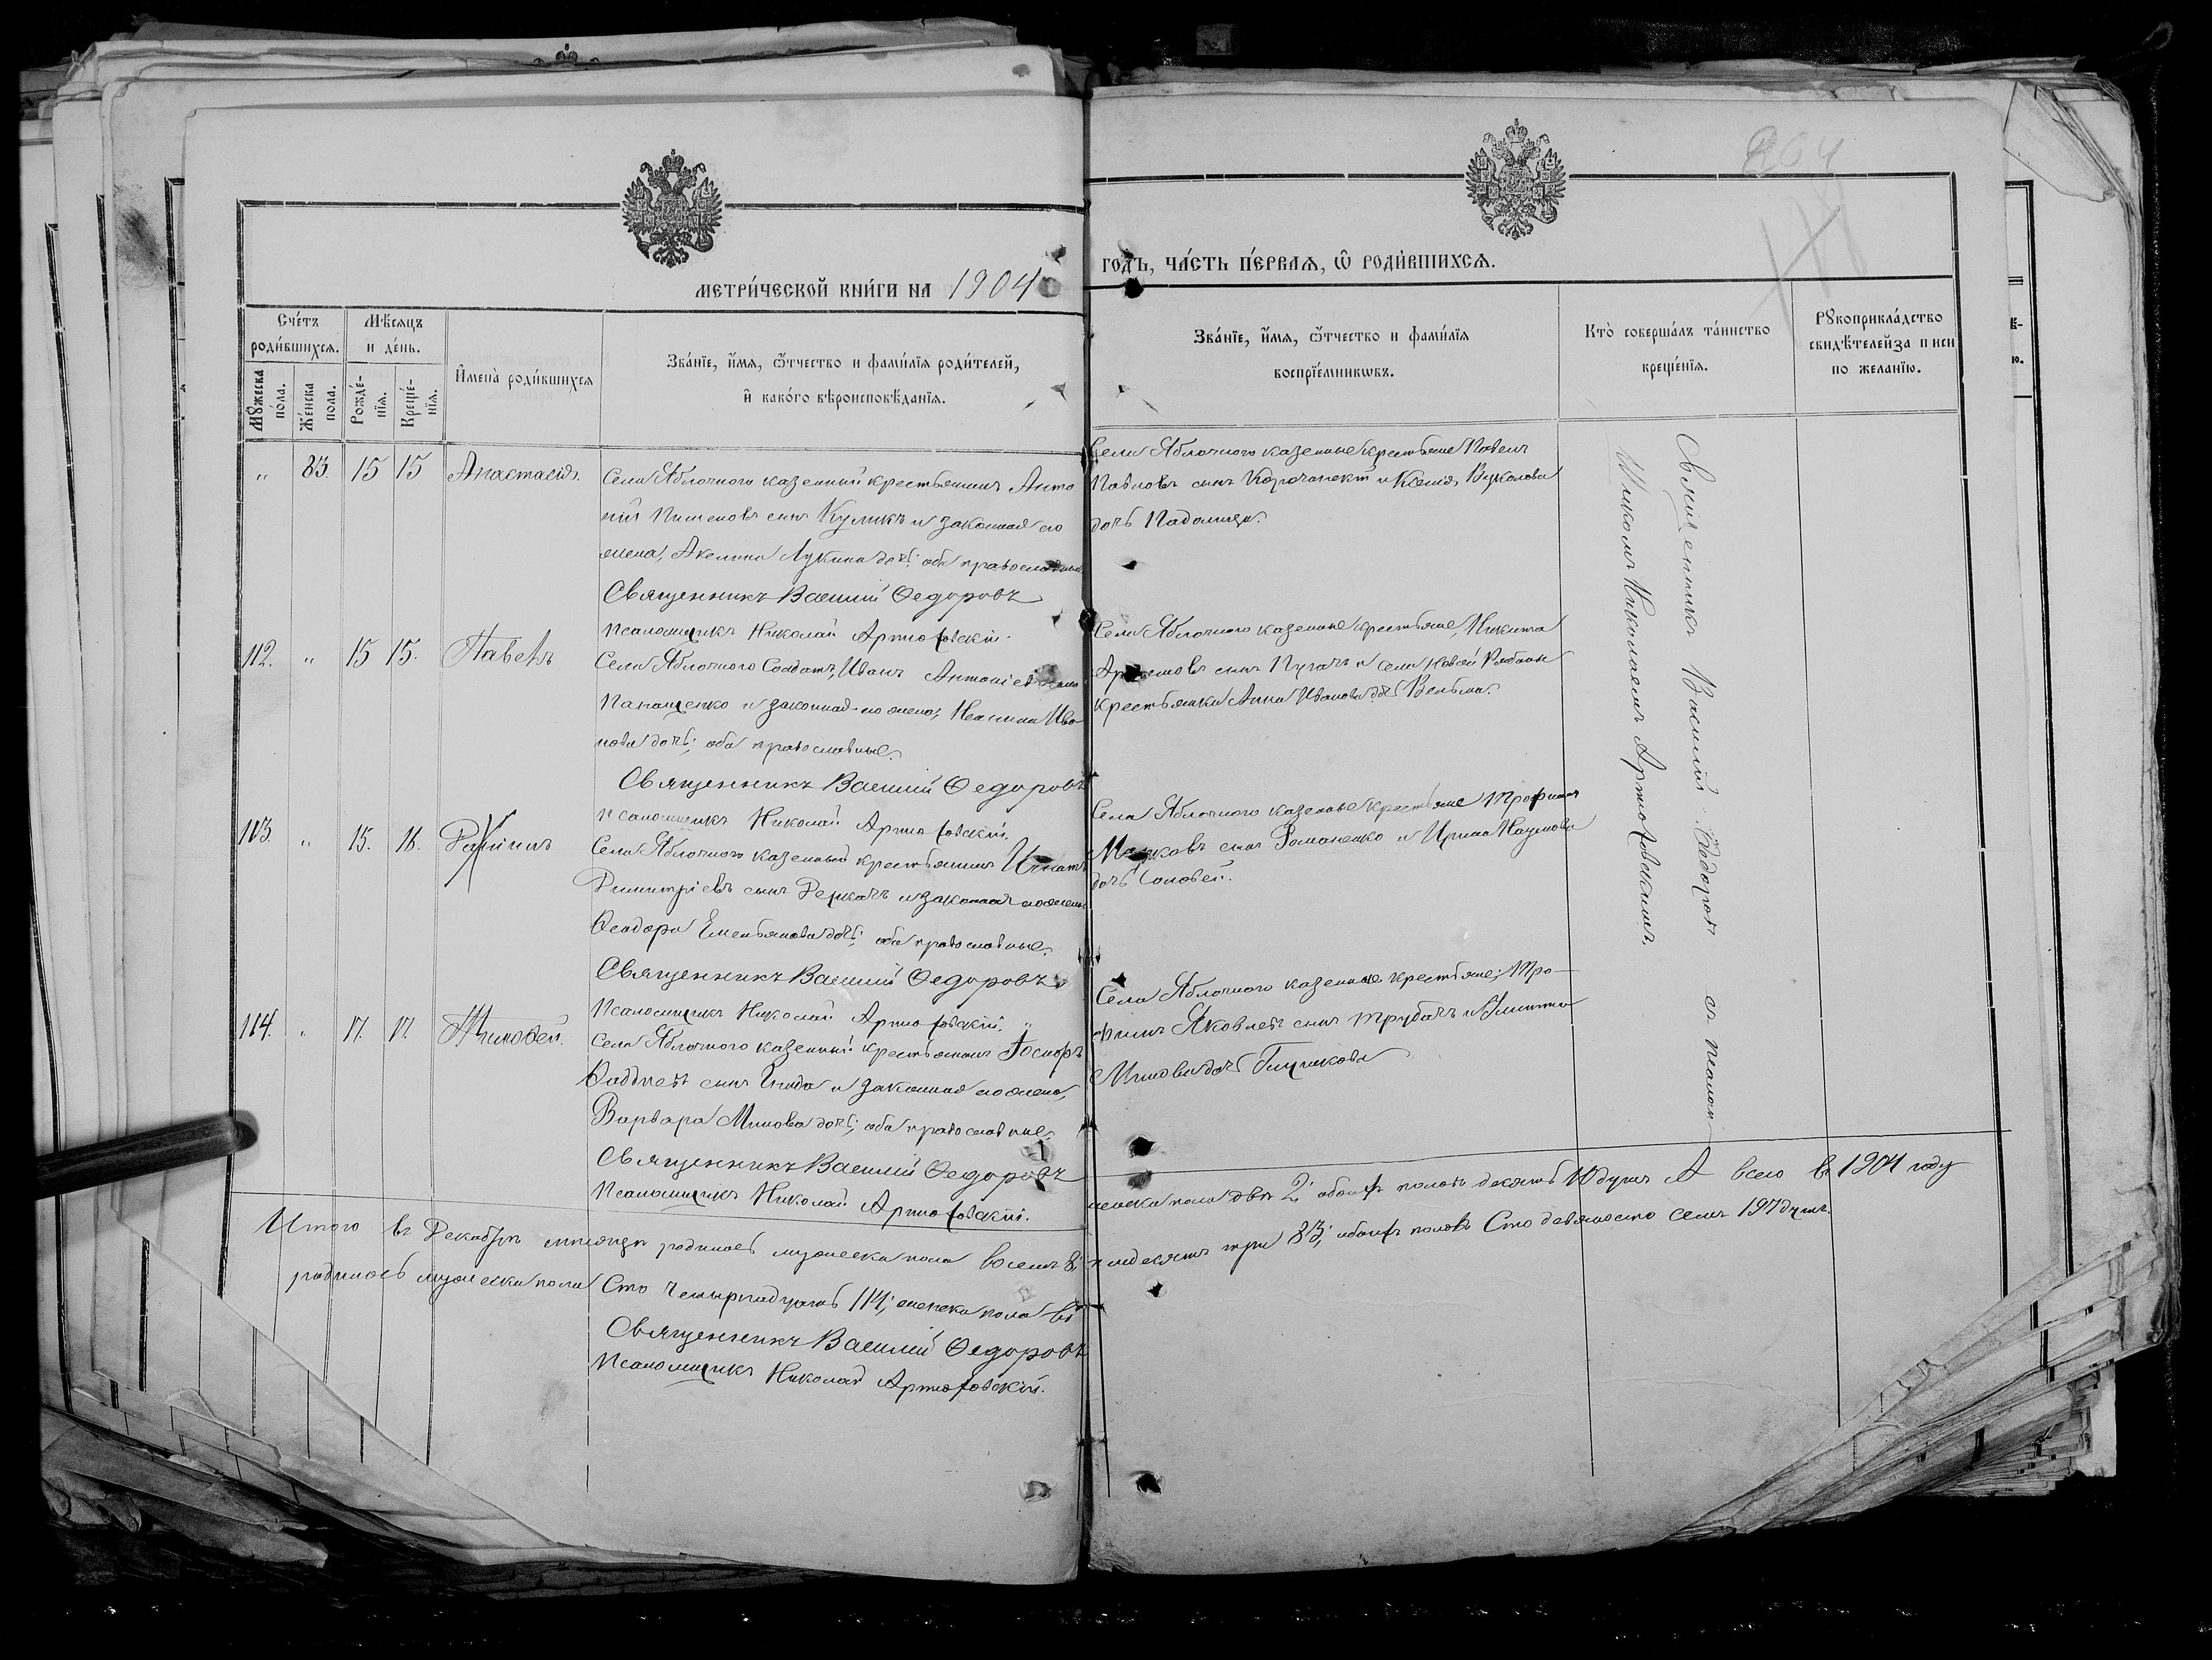 204
МЕТРИ́ЧЕСКОЙ КНИ́ГИ НА 1904
ГОДЪ, ЧА́СТЬ ПЕ́РВАѦ, Ѡ РОДИ́ВШИХСѦ.
Сче́тъ роди́вшихсѧ.
Мѣ́сѧцъ и де́нь.
Мꙋ́жеска по́ла.
Же́нска пола.
Рожде́-нїѧ.
Креще́-нїѧ.
И҆мена̀ роди́вшихсѧ
Зва́нїе, и҆́мѧ, ѻ҆́тчество и фами́лїѧ роди́телей,
и҆ како́гѡ вѣроисповѣ́данїѧ.
Зва́нїе, и҆́мѧ, ѻ҆́тчество и фами́лїѧ
воспрїе́мникѡвъ.
Кто̀ соверша́лъ та́инство
креще́нїѧ.
Рꙋкоприкла́дство
свидѣ́телей за писи
по жела́нїю.
„ 83. 15 15 Анастасія.
Села Яблочного казенный крестьянинъ Анто
ній Пименовъ сынъ Куликъ и законная его
жена, Акелина Лукина дочь; оба православные
Священникъ Василій Ѳедоровъ
Псаломщикъ Николай Артюховскій.
Села Яблочного казенные крестьяне Павелъ
Павловъ сынъ и Ксенія Вуколова
дочь
112. „ 15 15. Павелъ
Села Яблочного Солдатъ, Иванъ Антоніевъ сынъ
Панащенко и законная его жена, Ива
нова дочь; оба православные.
Священникъ Василій Ѳедоровъ
Псаломщикъ Николай Артюховскій.
Села Яблочного казенные крестьяне, Никита
сынъ Пугачъ и села Новой Рябины
крестьянка Анна Иванова дочь
113. „ 15. 16. Даніилъ
Села Яблочного казенный крестьянинъ Игнатъ
Димитріевъ сынъ и законная его жена
Ѳеодора Емельянова дочь; оба православные.
Священникъ Василій Ѳедоровъ
Псаломщикъ Николай Артюховскій.
Села Яблочного казенные крестьяне Трофимъ
Марковъ сынъ Романенко и Ирина Наумова
дочь Соловей.
114. „ 17. 17. Тимоѳей.
Села Яблочного казенный крестьянинъ
Ѳаддеевъ сынъ и законная его жена,
Варвара Минова дочь; оба православные.
Священникъ Василій Ѳедоровъ
Псаломщикъ Николай Артюховскій.
Села Яблочного казенные крестьяне; Тро-
фимъ Яковлевъ сынъ Трубачъ и
дочь
Священникъ Василій Ѳедоровъ съ псалом
щикомъ Николаемъ Артюховскимъ.
Итого въ Декабрѣ мѣсяцѣ родилось мужеска пола восемь 8; женска пола двѣ 2; обоихъ половъ десять 10 душъ А всего въ 1904 году
родилось мужеска пола Сто четырнадцать 114; женска пола во семдесятъ три 83; обоихъ половъ Сто девяносто семь 197 душъ.
Священникъ Василій Ѳедоровъ
Псаломщикъ Николай Артюховскій.